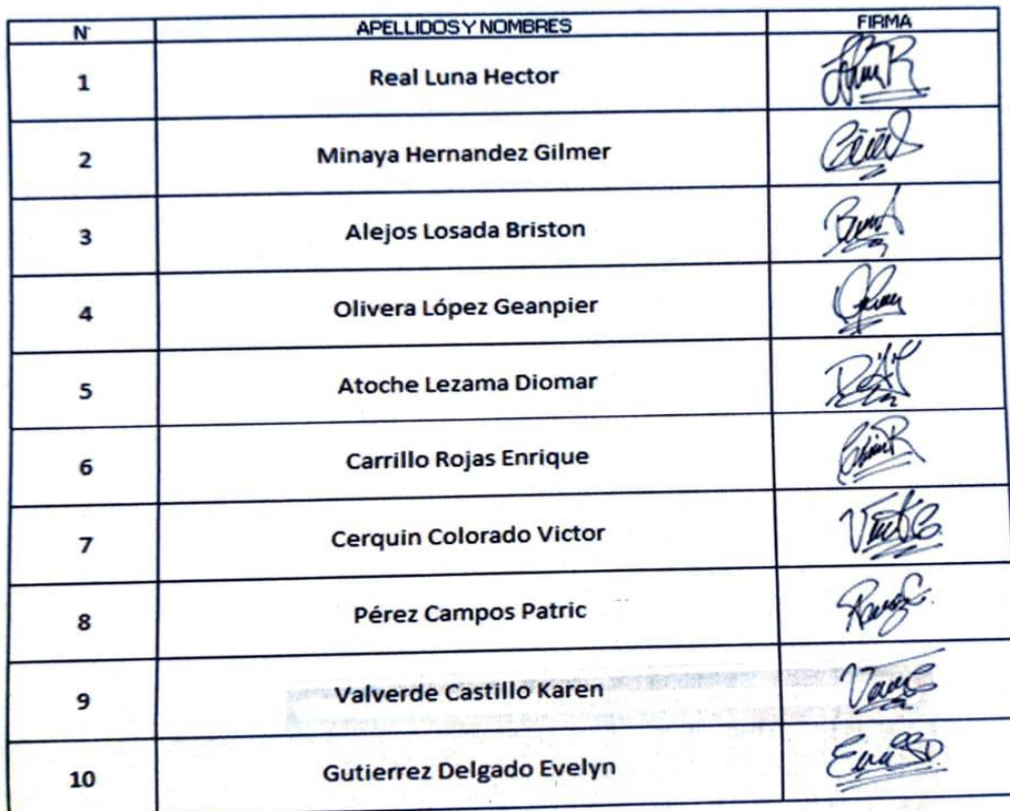 N° APELLIDOS Y NOMBRES FIRMA
1 Real Luna Hector
2 Minaya Hernandez Gilmer
3 Alejos Losada Briston
4 Olivera López Geanpier
5 Atoche Lezama Diomar
6 Carrillo Rojas Enrique
7 Cerquin Colorado Victor
8 Pérez Campos Patric
9 Valverde Castillo Karen
10 Gutierrez Delgado Evelyn